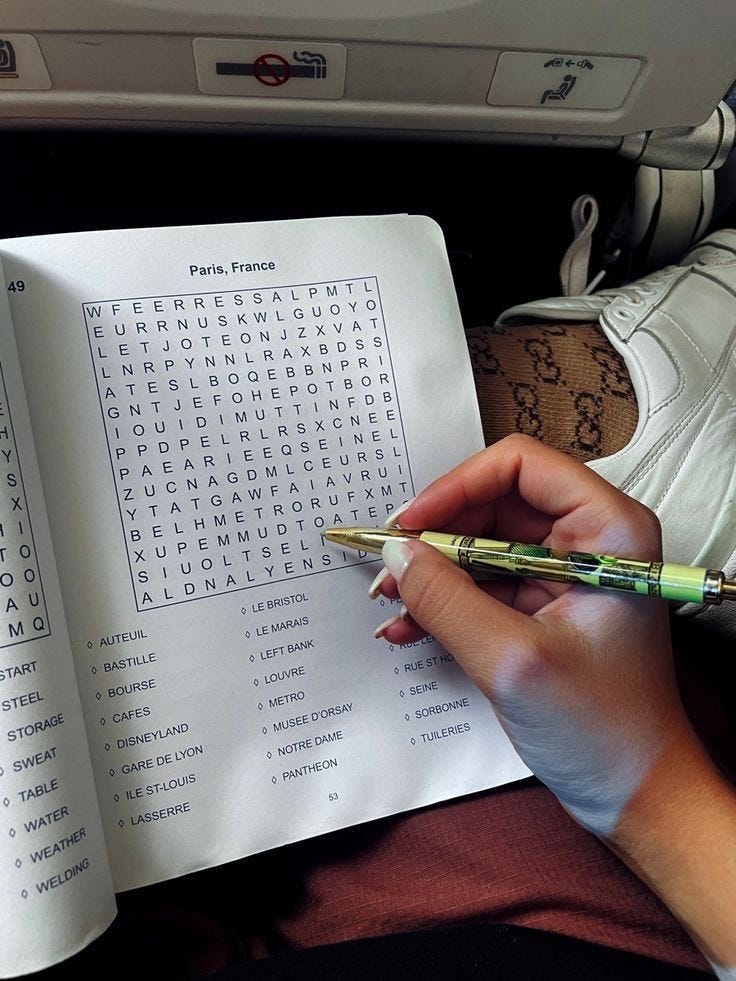 49
Paris, France
W F E E R R E S S A L P M T L
E U R R N U S K W L G U O Y O
L E T J O T E O N J Z X V A T
L N R P Y N N L R A X B D S S
A T E S L B O Q E B B N P R I
G N T J E F O H E P O T B O R
I O U I D I M U T T I N F D B
P P D P E L R L R S X C N E E
P A E A R I E E Q S E I N E L
Z U C N A G D M L C E U R S L
Y T A T G A W F A I A V R U I
B E L H M E T R O R U F X M T
X U P E M M U D T O A T E P
S I U O L T S E L
A L D N A L Y E N S I D
H
Y
S
X
I
T O
O O
A U
M Q
START
STEEL
STORAGE
SWEAT
TABLE
WATER
WEATHER
WELDING
AUTEUIL
BASTILLE
BOURSE
CAFES
DISNEYLAND
GARE DE LYON
ILE ST-LOUIS
LASSERRE
LE BRISTOL
LE MARAIS
LEFT BANK
LOUVRE
METRO
MUSEE D'ORSAY
NOTRE DAME
PANTHEON
RUE ST
SEINE
SORBONNE
TUILERIES
53